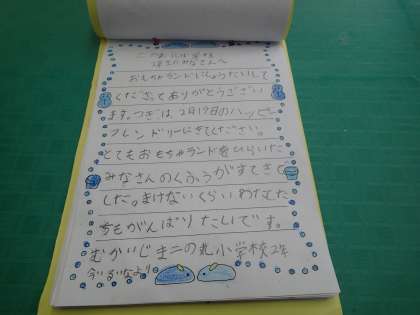 おもちゃランドにしょうたいして
くださってありがとうござい
ます。つぎは2月17日のハッピー
フレンドリーにきてください。
とてもおもちゃランドをひらいた
みなさんのくふうがすてきで
した。まけないくらいわたした
ちもがんばりたいです。
むかいじま二の丸小学校2年
より